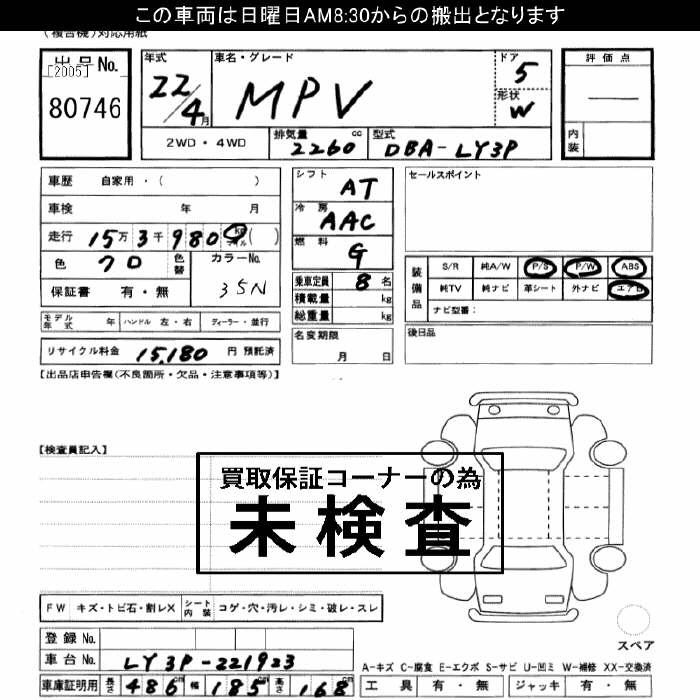 この車両は日曜日AM8:30からの搬出となります
(複合機)対応用紙
出品No.
[2005]
80746
年式 22/4月
車名・グレード MPV
ドア 5
形状 W
評価点 —
内装
2WD・4WD
排気量 2260 cc
型式 DBA-LY3P
車歴 自家用・( )
車検 年 月
走行 15万3千980 km マイル ( )
色 クロ 色替
カラーNo. 35N
保証書 有・無
シフト AT
冷房 AAC
燃料 G
乗車定員 8名
積載量 kg
総重量 kg
名変期限 月 日
セールスポイント
装備品
S/R 純A/W P/S P/W ABS
純TV 純ナビ 革シート 外ナビ エアB
ナビ型番:
後日品
モデル年式 年 ハンドル 左・右 ディーラー・並行
リサイクル料金 15,180 円 預託済
【出品店申告欄(不良箇所・欠品・注意事項等)】
【検査員記入】
買取保証コーナーの為
未検査
FW キズ・トビ石・割レX シート内装 コゲ・穴・汚レ・シミ・破レ・スレ
登録No.
車台No. LY3P-221923
車庫証明用 長さ 486 cm 幅 185 cm 高さ 168 cm
スペア
A-キズ C-腐食 E-エクボ S-サビ U-凹ミ W-補修 XX-交換済
工具 有・無 ジャッキ 有・無